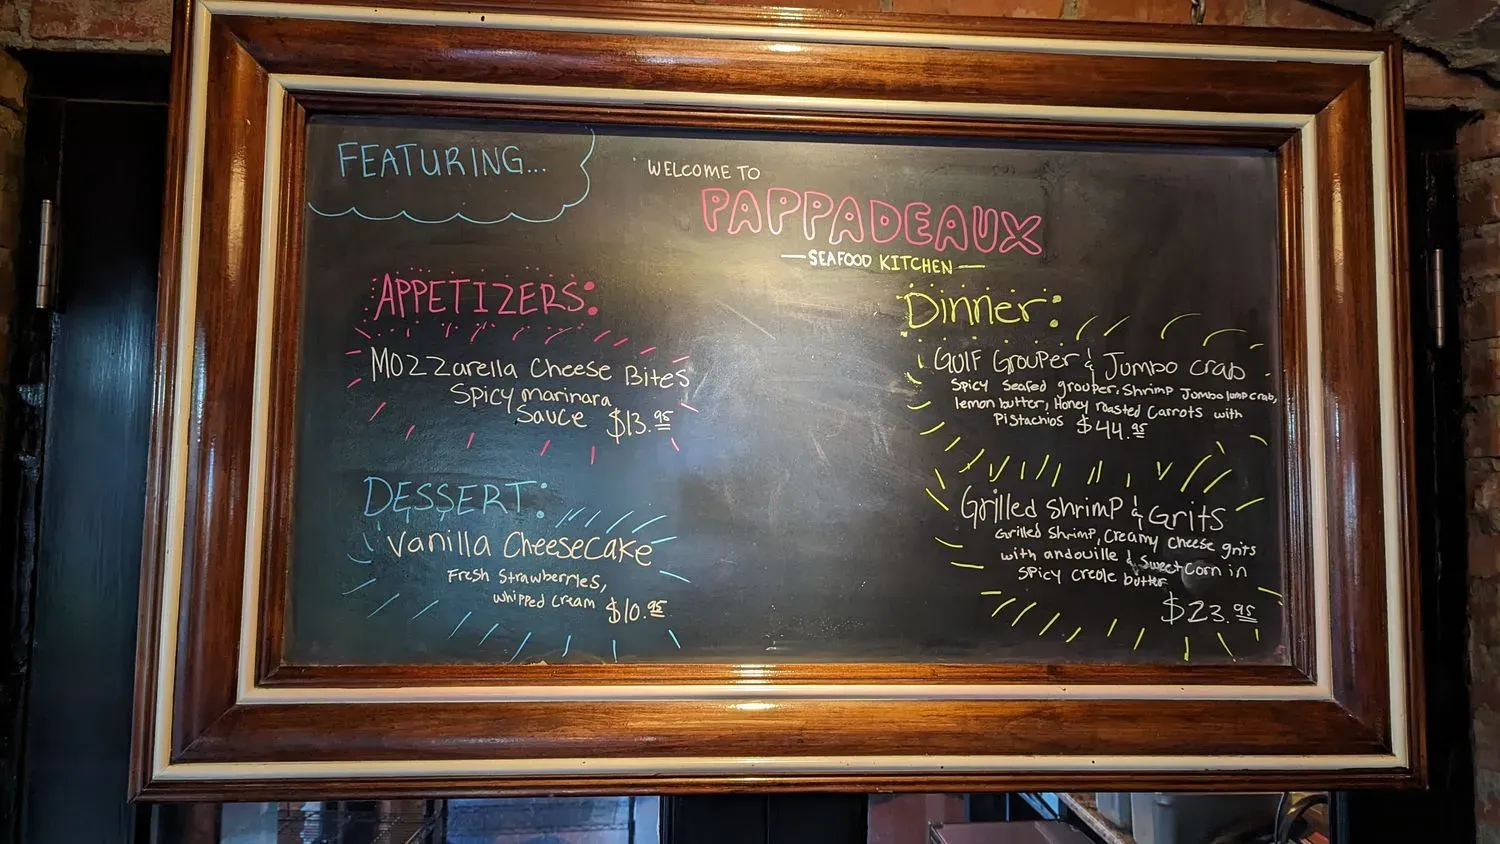 FEATURING...
WELCOME TO
PAPPADEAUX
—SEAFOOD KITCHEN—
APPETIZERS:
Mozzarella Cheese Bites
Spicy marinara
Sauce $13.95
DESSERT:
Vanilla Cheesecake
Fresh Strawberries,
whipped cream $10.95
Dinner:
Gulf Grouper & Jumbo crab
Spicy Seafed grouper, Shrimp Jumbo lump crab,
lemon butter, Honey roasted Carrots with
Pistachios $44.95
Grilled Shrimp & Grits
Grilled Shrimp, Creamy Cheese grits
with andouille & Sweet Corn in
Spicy creole butter
$23.95